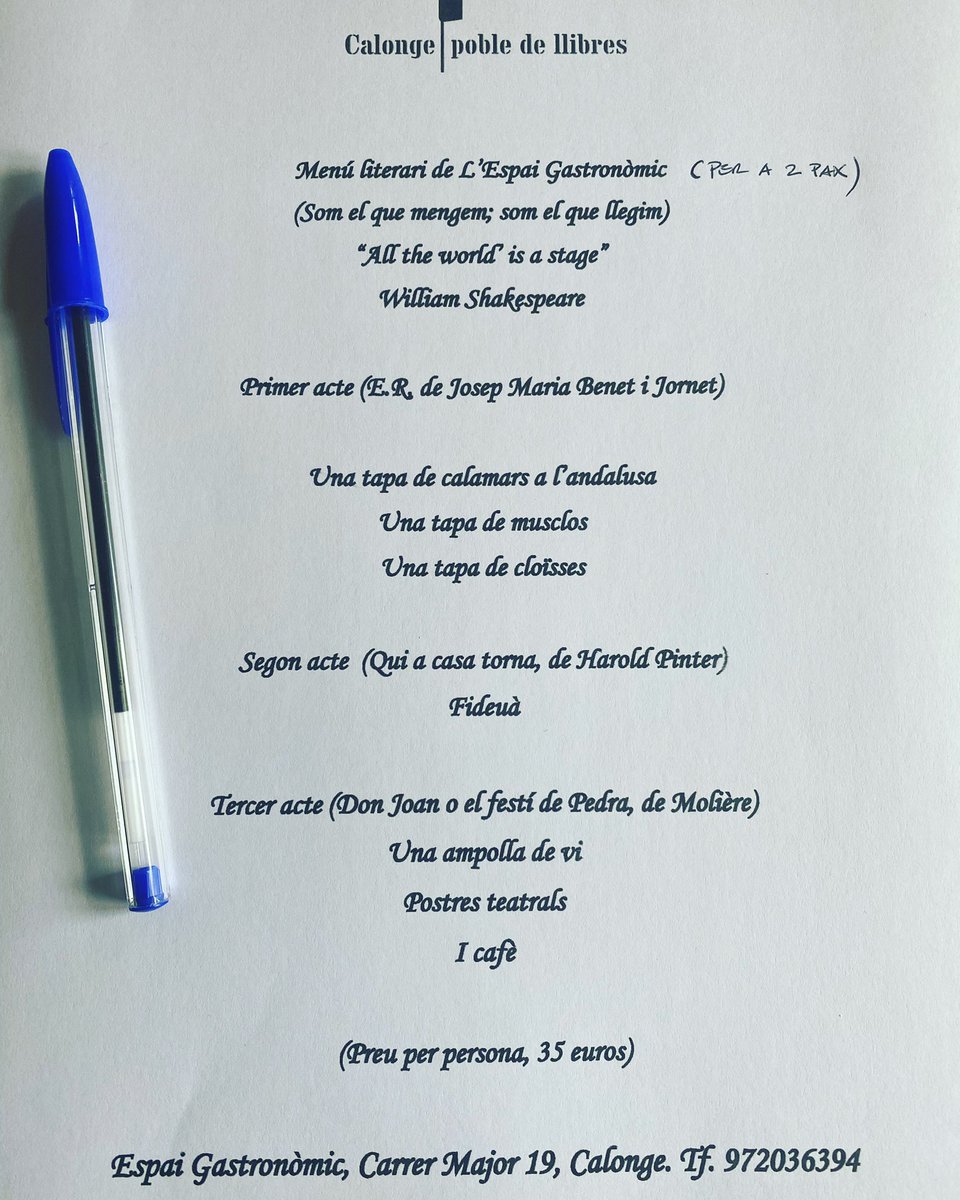 Calonge poble de llibres
Menú literari de L'Espai Gastronòmic (PER A 2 PAX)
(Som el que mengem; som el que llegim)
“All the world' is a stage”
William Shakespeare
Primer acte (E.R. de Josep Maria Benet i Jornet)
Una tapa de calamars a l'andalusa
Una tapa de musclos
Una tapa de cloïsses
Segon acte (Qui a casa torna, de Harold Pinter)
Fideuà
Tercer acte (Don Joan o el festí de Pedra, de Molière)
Una ampolla de vi
Postres teatrals
I cafè
(Preu per persona, 35 euros)
Espai Gastronòmic, Carrer Major 19, Calonge. Tf. 972036394